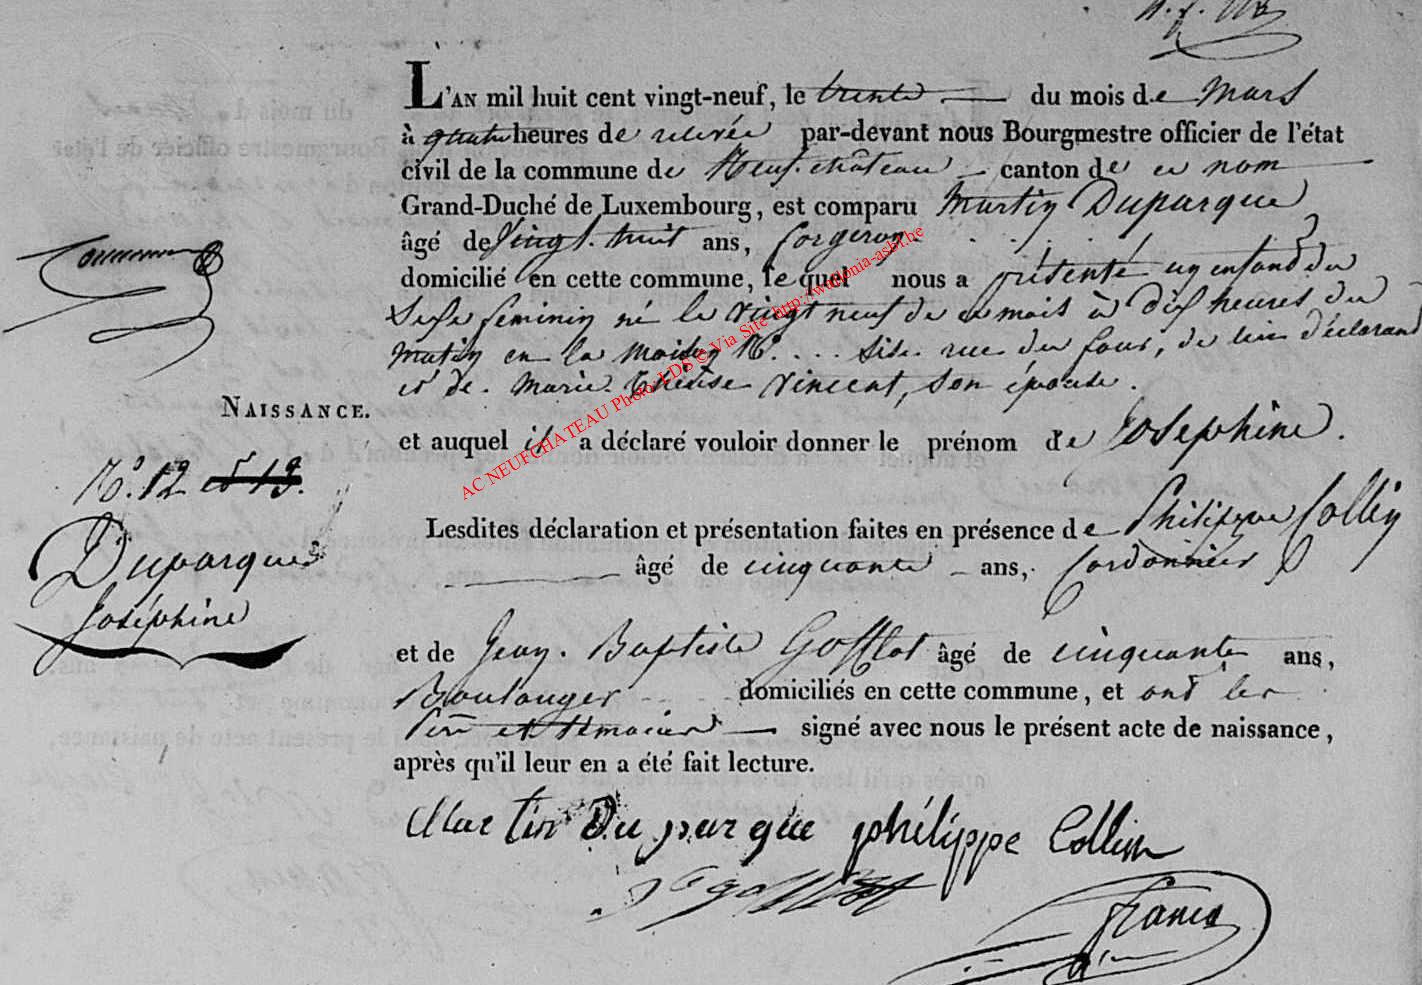 L'AN mil huit cent vingt-neuf, le trente du mois de Mars
à quatre heures de relevée par-devant nous Bourgmestre officier de l'état
civil de la commune de Neufchâteau canton de ce nom
Grand-Duché de Luxembourg, est comparu Martin Duparque
âgé de vingt-huit ans, forgeron.
domicilié en cette commune, lequel nous a présenté un enfant du
Sexe féminin né le vingt neuf de ce mois à dix heures du
matin en la maison N°. ... sise rue du four, de lui déclarant
et de Marie Thérèse Vincent, son épouse.
NAISSANCE.
et auquel il a déclaré vouloir donner le prénom de Joséphine.
N°. 12 et 13.
Duparque
Joséphine
Lesdites déclaration et présentation faites en présence de Philippe Collin
âgé de cinquante ans, Cordonnier
et de Jean-Baptiste Gofflot âgé de cinquante ans,
Boulanger domiciliés en cette commune, et ont les
Père et témoins signé avec nous le présent acte de naissance,
après qu'il leur en a été fait lecture.
Martin Duparque philippe Collin
AC NEUFCHATEAU Photo: LDS © Via Site http://wallonia-asbl.be